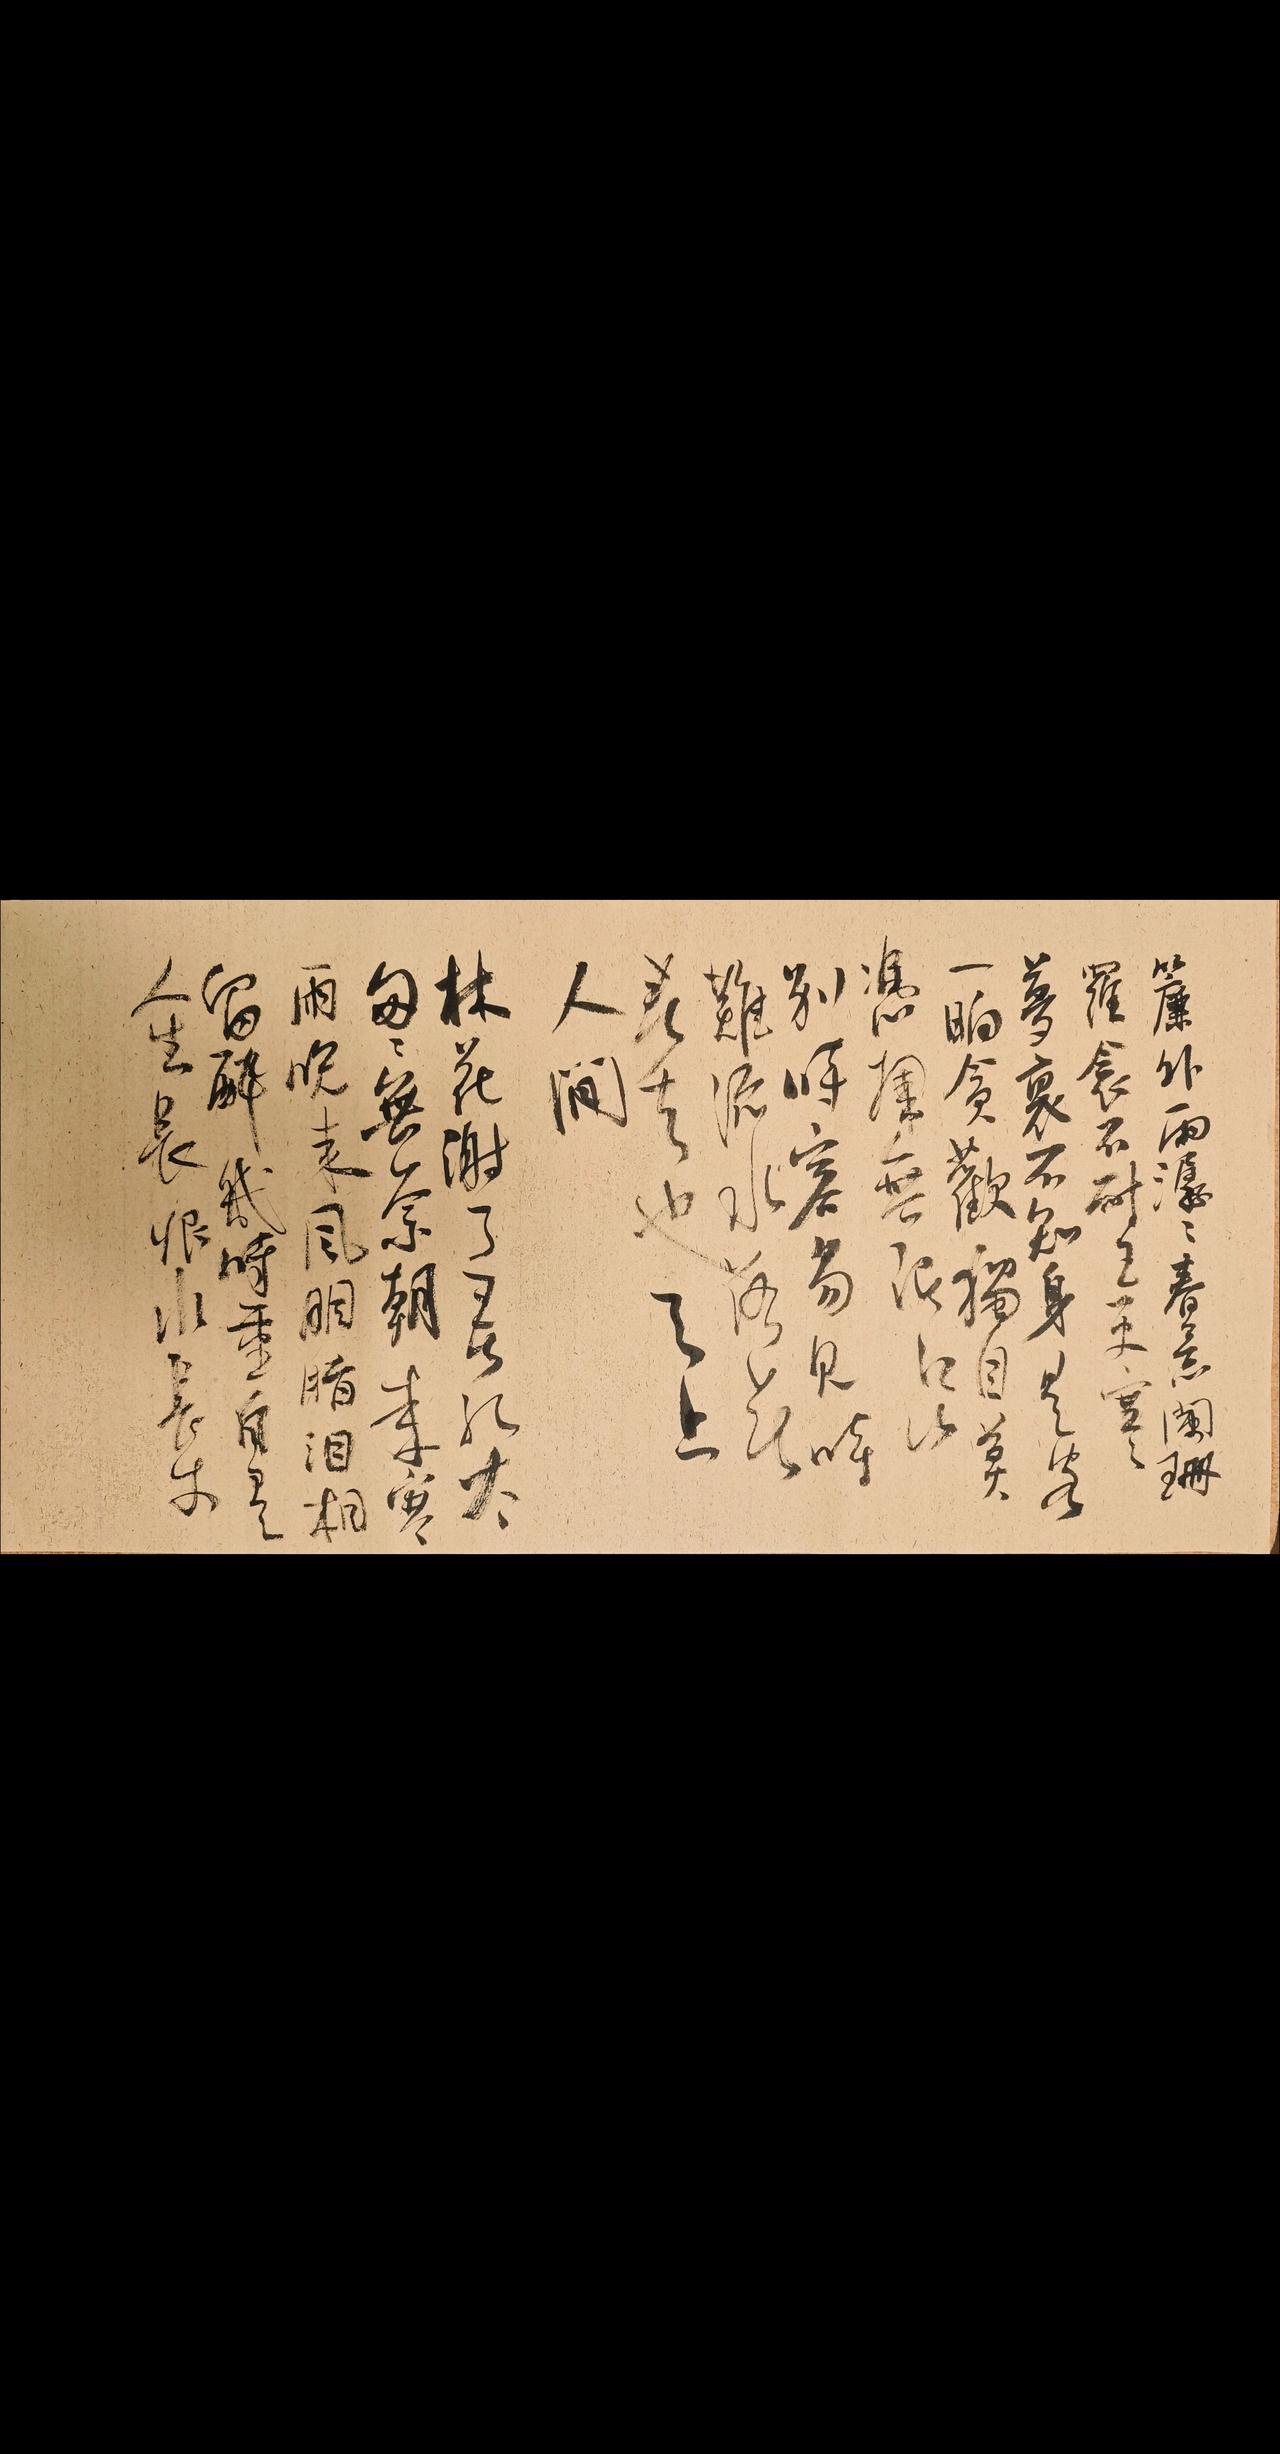 簾外雨潺〻春意闌珊
羅衾不耐五更寒
夢裏不知身是客
一晌貪歡獨自莫
憑欄無限江山
別時容易見時
難流水落花
春去也天上
人間
林花謝了春紅太
匆〻無奈朝來寒
雨晚來風胭脂淚相
留醉幾時重自是
人生長恨水長東